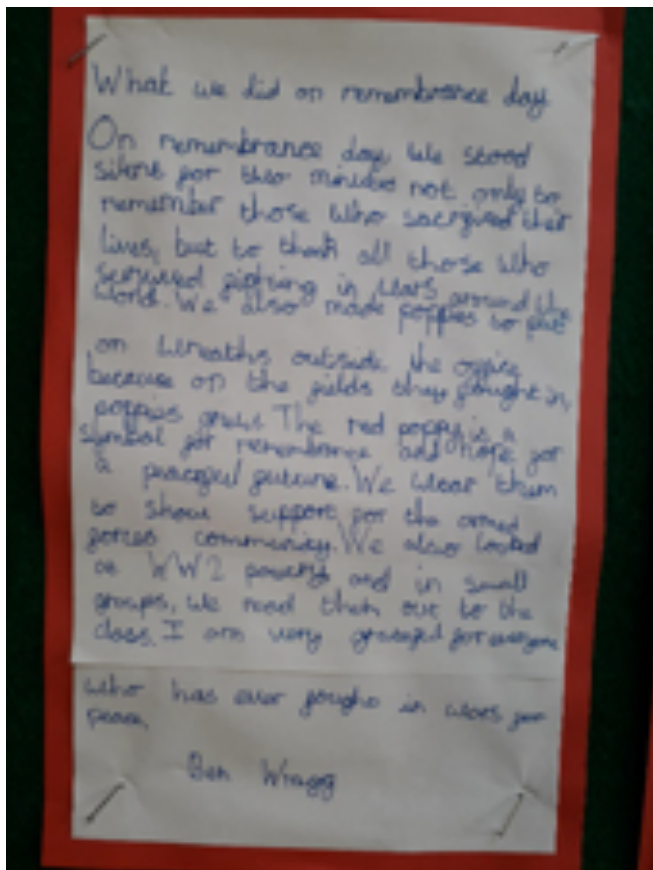 What we did on remembrance day
On remembrance day, we stood
silent for two minutes not only to
remember those who sacrificed their
lives, but to thank all those who
survived fighting in wars around the
world. We also made poppies to put
on wreaths outside the office
because on the fields they fought in,
poppies grew. The red poppy is a
symbol for remembrance and hope for
a peaceful future. We wear them
to show support for the armed
forces community. We also looked
at WW2 poetry and in small
groups, we read them out to the
class. I am very grateful for everyone
who has ever fought in wars for
peace.
Ben Wragg